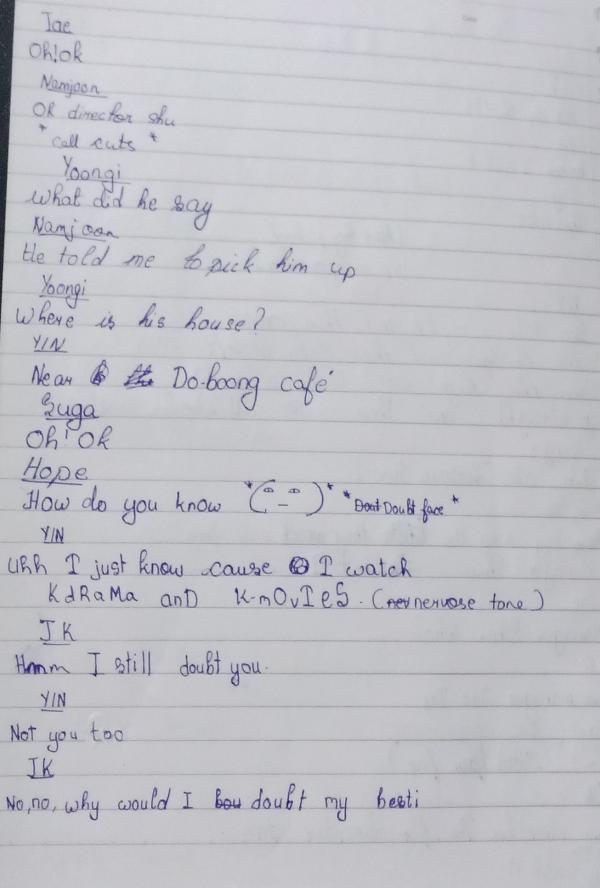 Tae
Oh!ok
Namjoon
Ok director shu
*call cuts*
Yoongi
What did he say
Namjoon
He told me to pick him up
Yoongi
Where is his house?
Y/N
Near Do-boong café
Suga
Oh! Ok
Hope
How do you know *( )* *Doubt face*
Y/N
Uhh I just know cause I watch
KdRaMa anD K-mOvIeS. (nervose tone)
JK
Hmmm I still doubt you.
Y/N
Not you too
JK
No,no, why would I doubt my besti